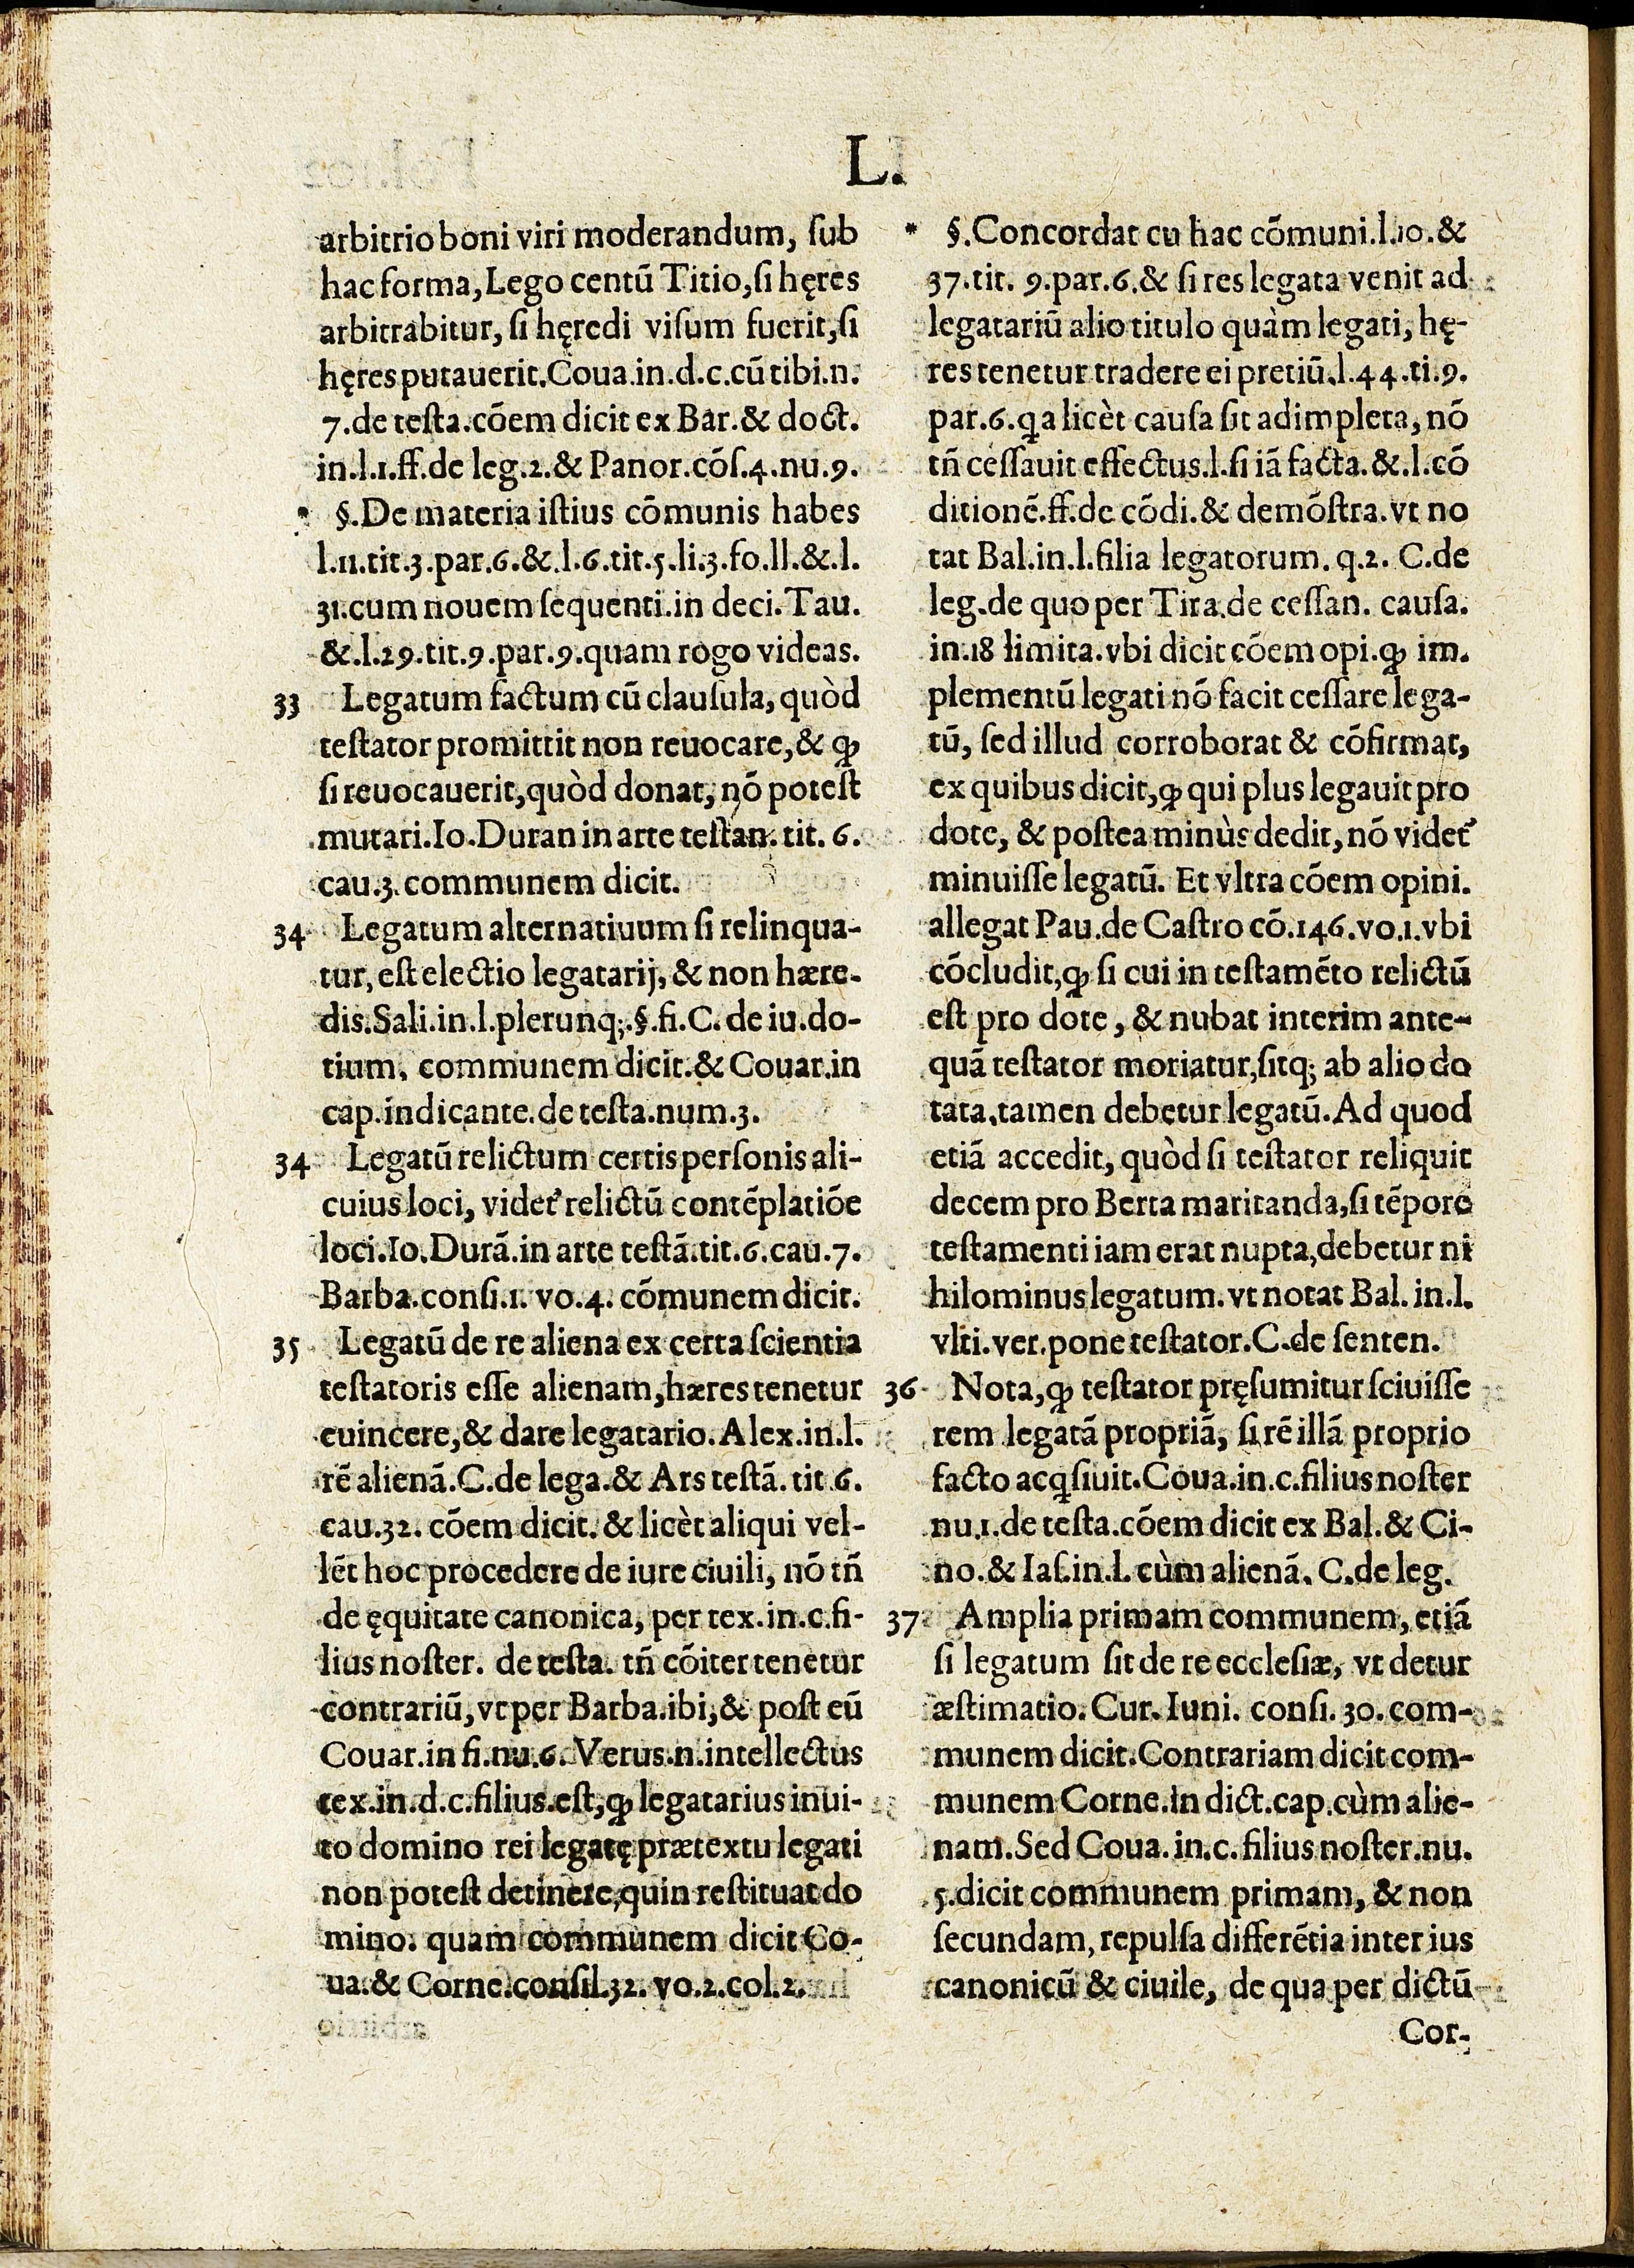 L.
arbitrio boni viri moderandum, ſub
hac forma, Lego centũ Titio, ſi hęres
arbitrabitur, ſi hęredi viſum fuerit, ſi
hęres putauerit. Coua.in.d.c.cũ tibi.n.
7.de teſta.cõem dicit ex Bar.& doct.
in.l.1.ff.de leg.2.& Panor.cõſ.4.nu.9.
* §.De materia iſtius cõmunis habes
l.11.tit.3.par.6.&.l.6.tit.5.li.3.fo.ll.&.l.
31.cum nouem ſequenti.in deci.Tau.
&.l.29.tit.9.par.9.quam rogo videas.
33 Legatum factum cũ clauſula, quòd
teſtator promittit non reuocare, & ꝙ
ſi reuocauerit, quòd donat, nõ poteſt
mutari. Io. Duran in arte teſtan. tit. 6.
cau.3. communem dicit.
34 Legatum alternatiuum ſi relinqua-
tur, eſt electio legatarij, & non hære-
dis. Sali.in.l.plerunq;.§.fi.C. de iu.do-
tium. communem dicit.& Couar.in
cap.indicante.de teſta.num.3.
34 Legatũ relictum certis perſonis ali-
cuius loci, videt᷑ relictũ contẽplatiõe
loci. Io. Durã.in arte teſtã.tit.6.cau.7.
Barba.conſi.1. vo.4. cõmunem dicit.
35 Legatũ de re aliena ex certa ſcientia
teſtatoris eſſe alienam, hæres tenetur
euincere, & dare legatario. Alex.in.l.
rẽ alienã.C.de lega.& Ars teſtã. tit 6.
cau.32. cõem dicit. & licèt aliqui vel-
lẽt hoc procedere de iure ciuili, nõ tñ
de ęquitate canonica, per tex.in.c.fi-
lius noſter. de teſta. tñ cõiter tenetur
contrariũ, vt per Barba.ibi, & poſt eũ
Couar.in fi.nu.6. Verus.n.intellectus
tex.in.d.c.filius.eſt, ꝙ legatarius inui-
to domino rei legatę prætextu legati
non poteſt detinere, quin reſtituat do
mino. quam communem dicit Co-
ua.& Corne.conſil.32. vo.2.col.2.
* §.Concordat cu hac cõmuni.l.10.&
37.tit. 9.par.6.& ſi res legata venit ad
legatariũ alio titulo quàm legati, hę-
res tenetur tradere ei pretiũ.l.44.ti.9.
par.6.q̃a licèt cauſa ſit adimpleta, nõ
tñ ceſſauit effectus.l.ſi iã facta.&.l.cõ
ditionẽ.ff.de cõdi.& demõſtra.vt no
tat Bal.in.l.filia legatorum. q.2. C.de
leg.de quo per Tira.de ceſſan. cauſa.
in.18 limita.vbi dicit cõem opi.ꝙ im.
plementũ legati nõ facit ceſſare lega-
tũ, ſed illud corroborat & cõfirmat,
ex quibus dicit, ꝙ qui plus legauit pro
dote, & poſtea minùs dedit, nõ videt᷑
minuiſſe legatũ. Et vltra cõem opini.
allegat Pau.de Caſtro cõ.146.vo.1.vbi
cõcludit, ꝙ ſi cui in teſtamẽto relictũ
eſt pro dote, & nubat interim ante-
quã teſtator moriatur, ſitq; ab alio do
tata, tamen debetur legatũ. Ad quod
etiã accedit, quòd ſi teſtator reliquit
decem pro Berta maritanda, ſi tẽpore
teſtamenti iam erat nupta, debetur ni
hilominus legatum. vt notat Bal. in.l.
vlti.ver.pone teſtator.C.de ſenten.
36 Nota, ꝙ teſtator pręſumitur ſciuiſſe
rem legatã propriã, ſi rẽ illã proprio
facto acq̃ſiuit. Coua.in.c.filius noſter
nu.1.de teſta.cõem dicit ex Bal.& Ci-
no.& Iaſ.in.l.cùm alienã. C.de leg.
37 Amplia primam communem, etiã
ſi legatum ſit de re eccleſiæ, vt detur
æſtimatio. Cur. Iuni. conſi. 30. com-
munem dicit. Contrariam dicit com-
munem Corne.in dict.cap.cùm alie-
nam. Sed Coua. in.c. filius noſter.nu.
5.dicit communem primam, & non
ſecundam, repulſa differẽtia inter ius
canonicũ & ciuile, de qua per dictũ
Cor-